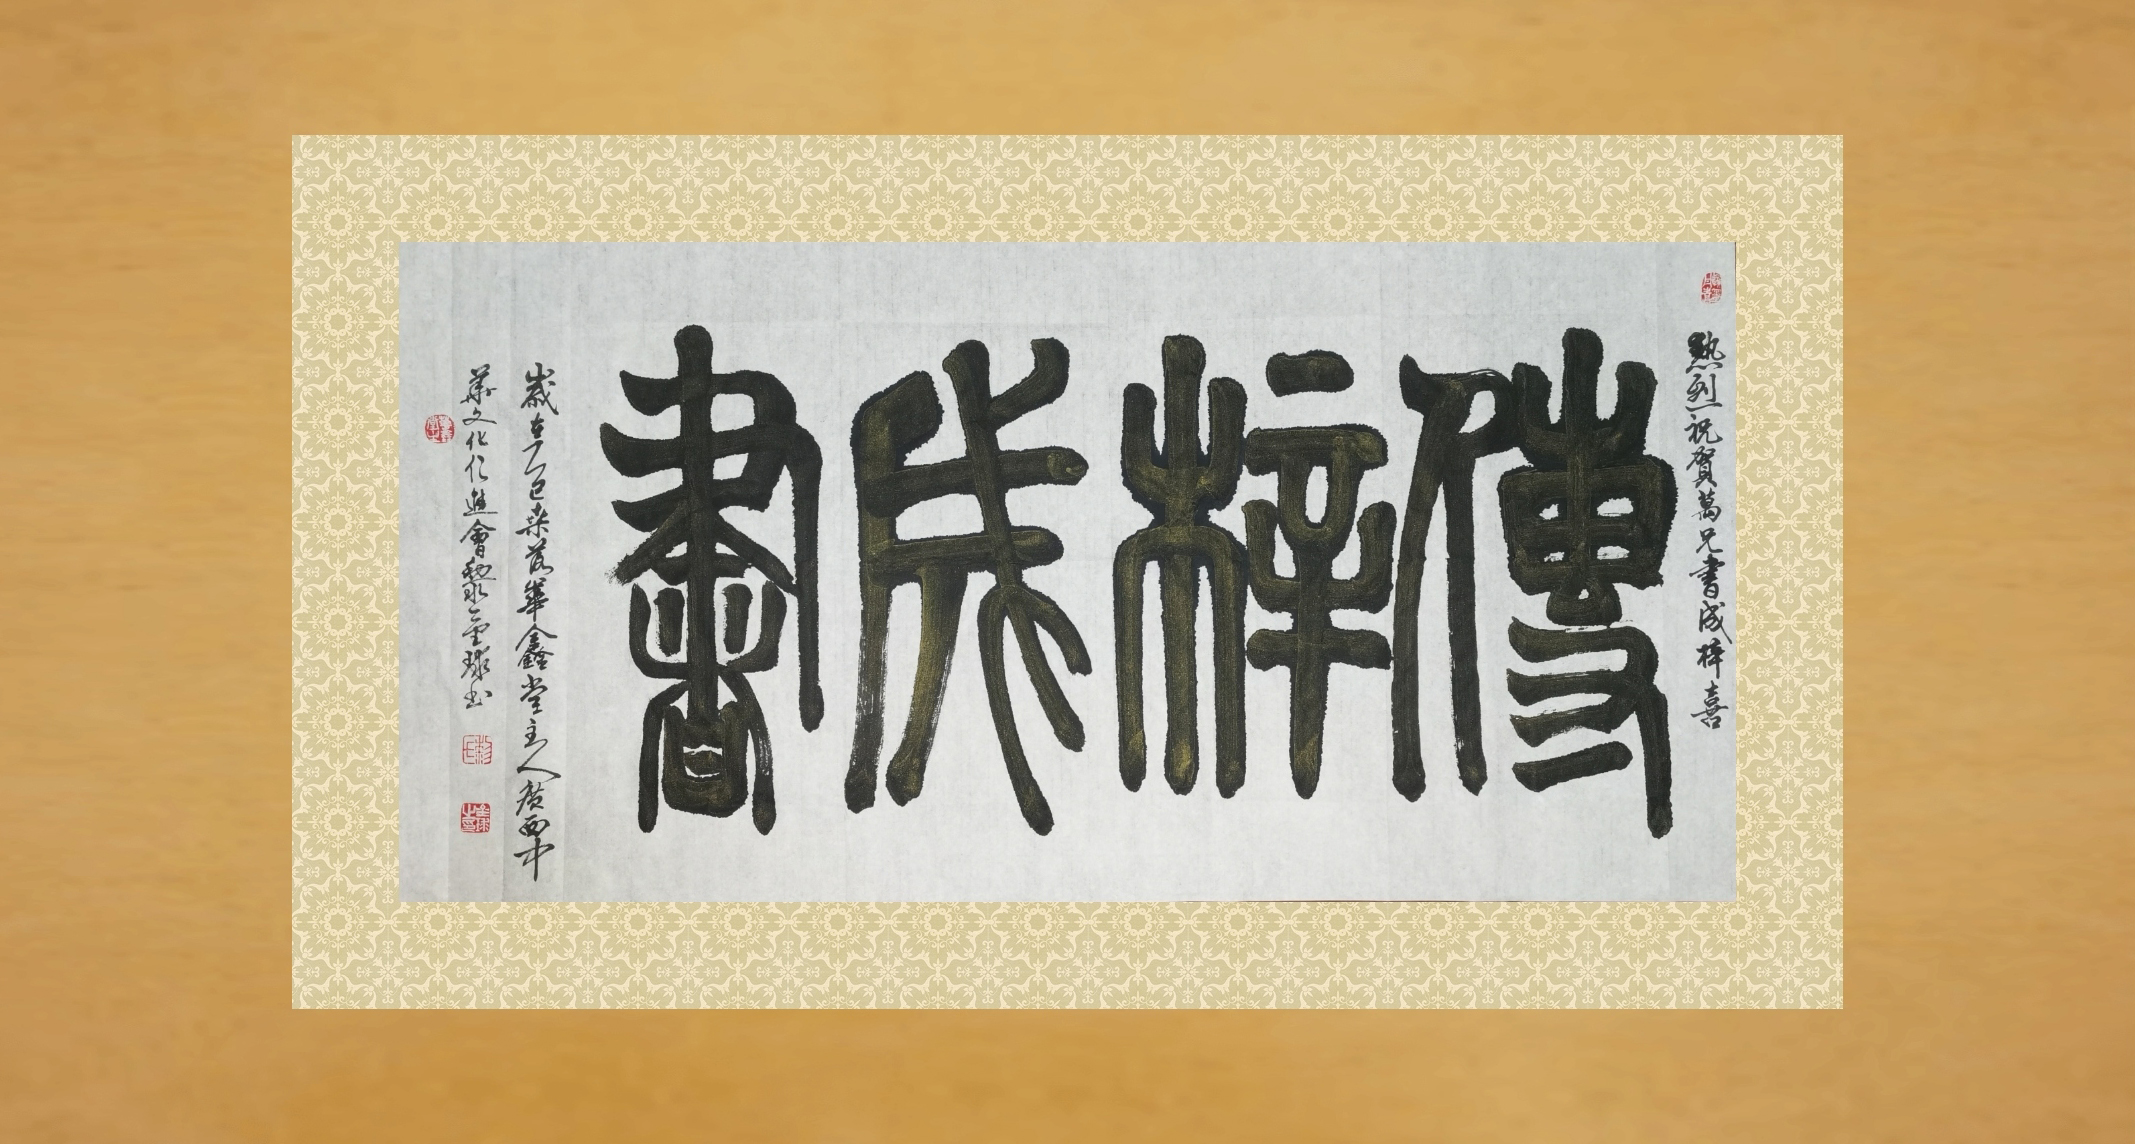 熱烈祝賀萬兄書成梓喜
傳梓成書
歲在乙巳桒落華鑫堂主人廣西中
華文化促進會黎球书